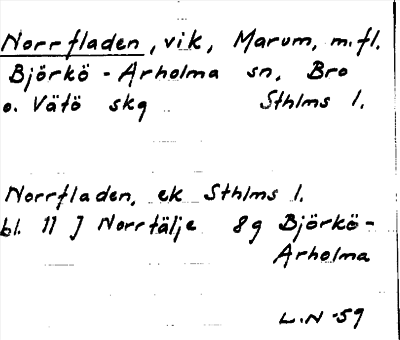 Norrfladen, vik, Marum, m.fl.
Björkö - Arholma sn, Bro
o. Vätö skg Sthlms l.
Norrfladen, ek Sthlms l.
bl. 11 J Norrtälje 8g Björkö-
Arholma
L.N -59